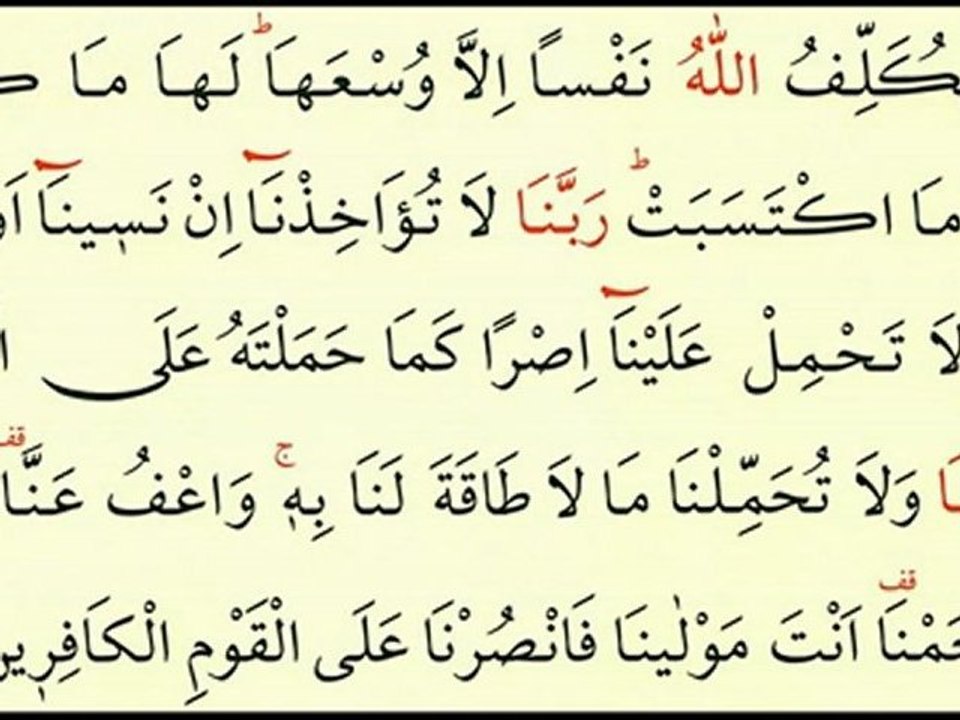 يُكَلِّفُ اللّٰهُ نَفْساً اِلاَّ وُسْعَهَاؕ لَهَا مَا
مَا اكْتَسَبَتْؕ رَبَّنَا لَا تُؤَاخِذْنَٓا اِنْ نَسٖينَٓا اَوْ
لَا تَحْمِلْ عَلَيْنَٓا اِصْرًا كَمَا حَمَلْتَهُ عَلَى
وَلَا تُحَمِّلْنَا مَا لَا طَاقَةَ لَنَا بِهٖۚ وَاعْفُ عَنَّا قف
اَنْتَ مَوْلٰينَا فَانْصُرْنَا عَلَى الْقَوْمِ الْكَافِرٖينَ